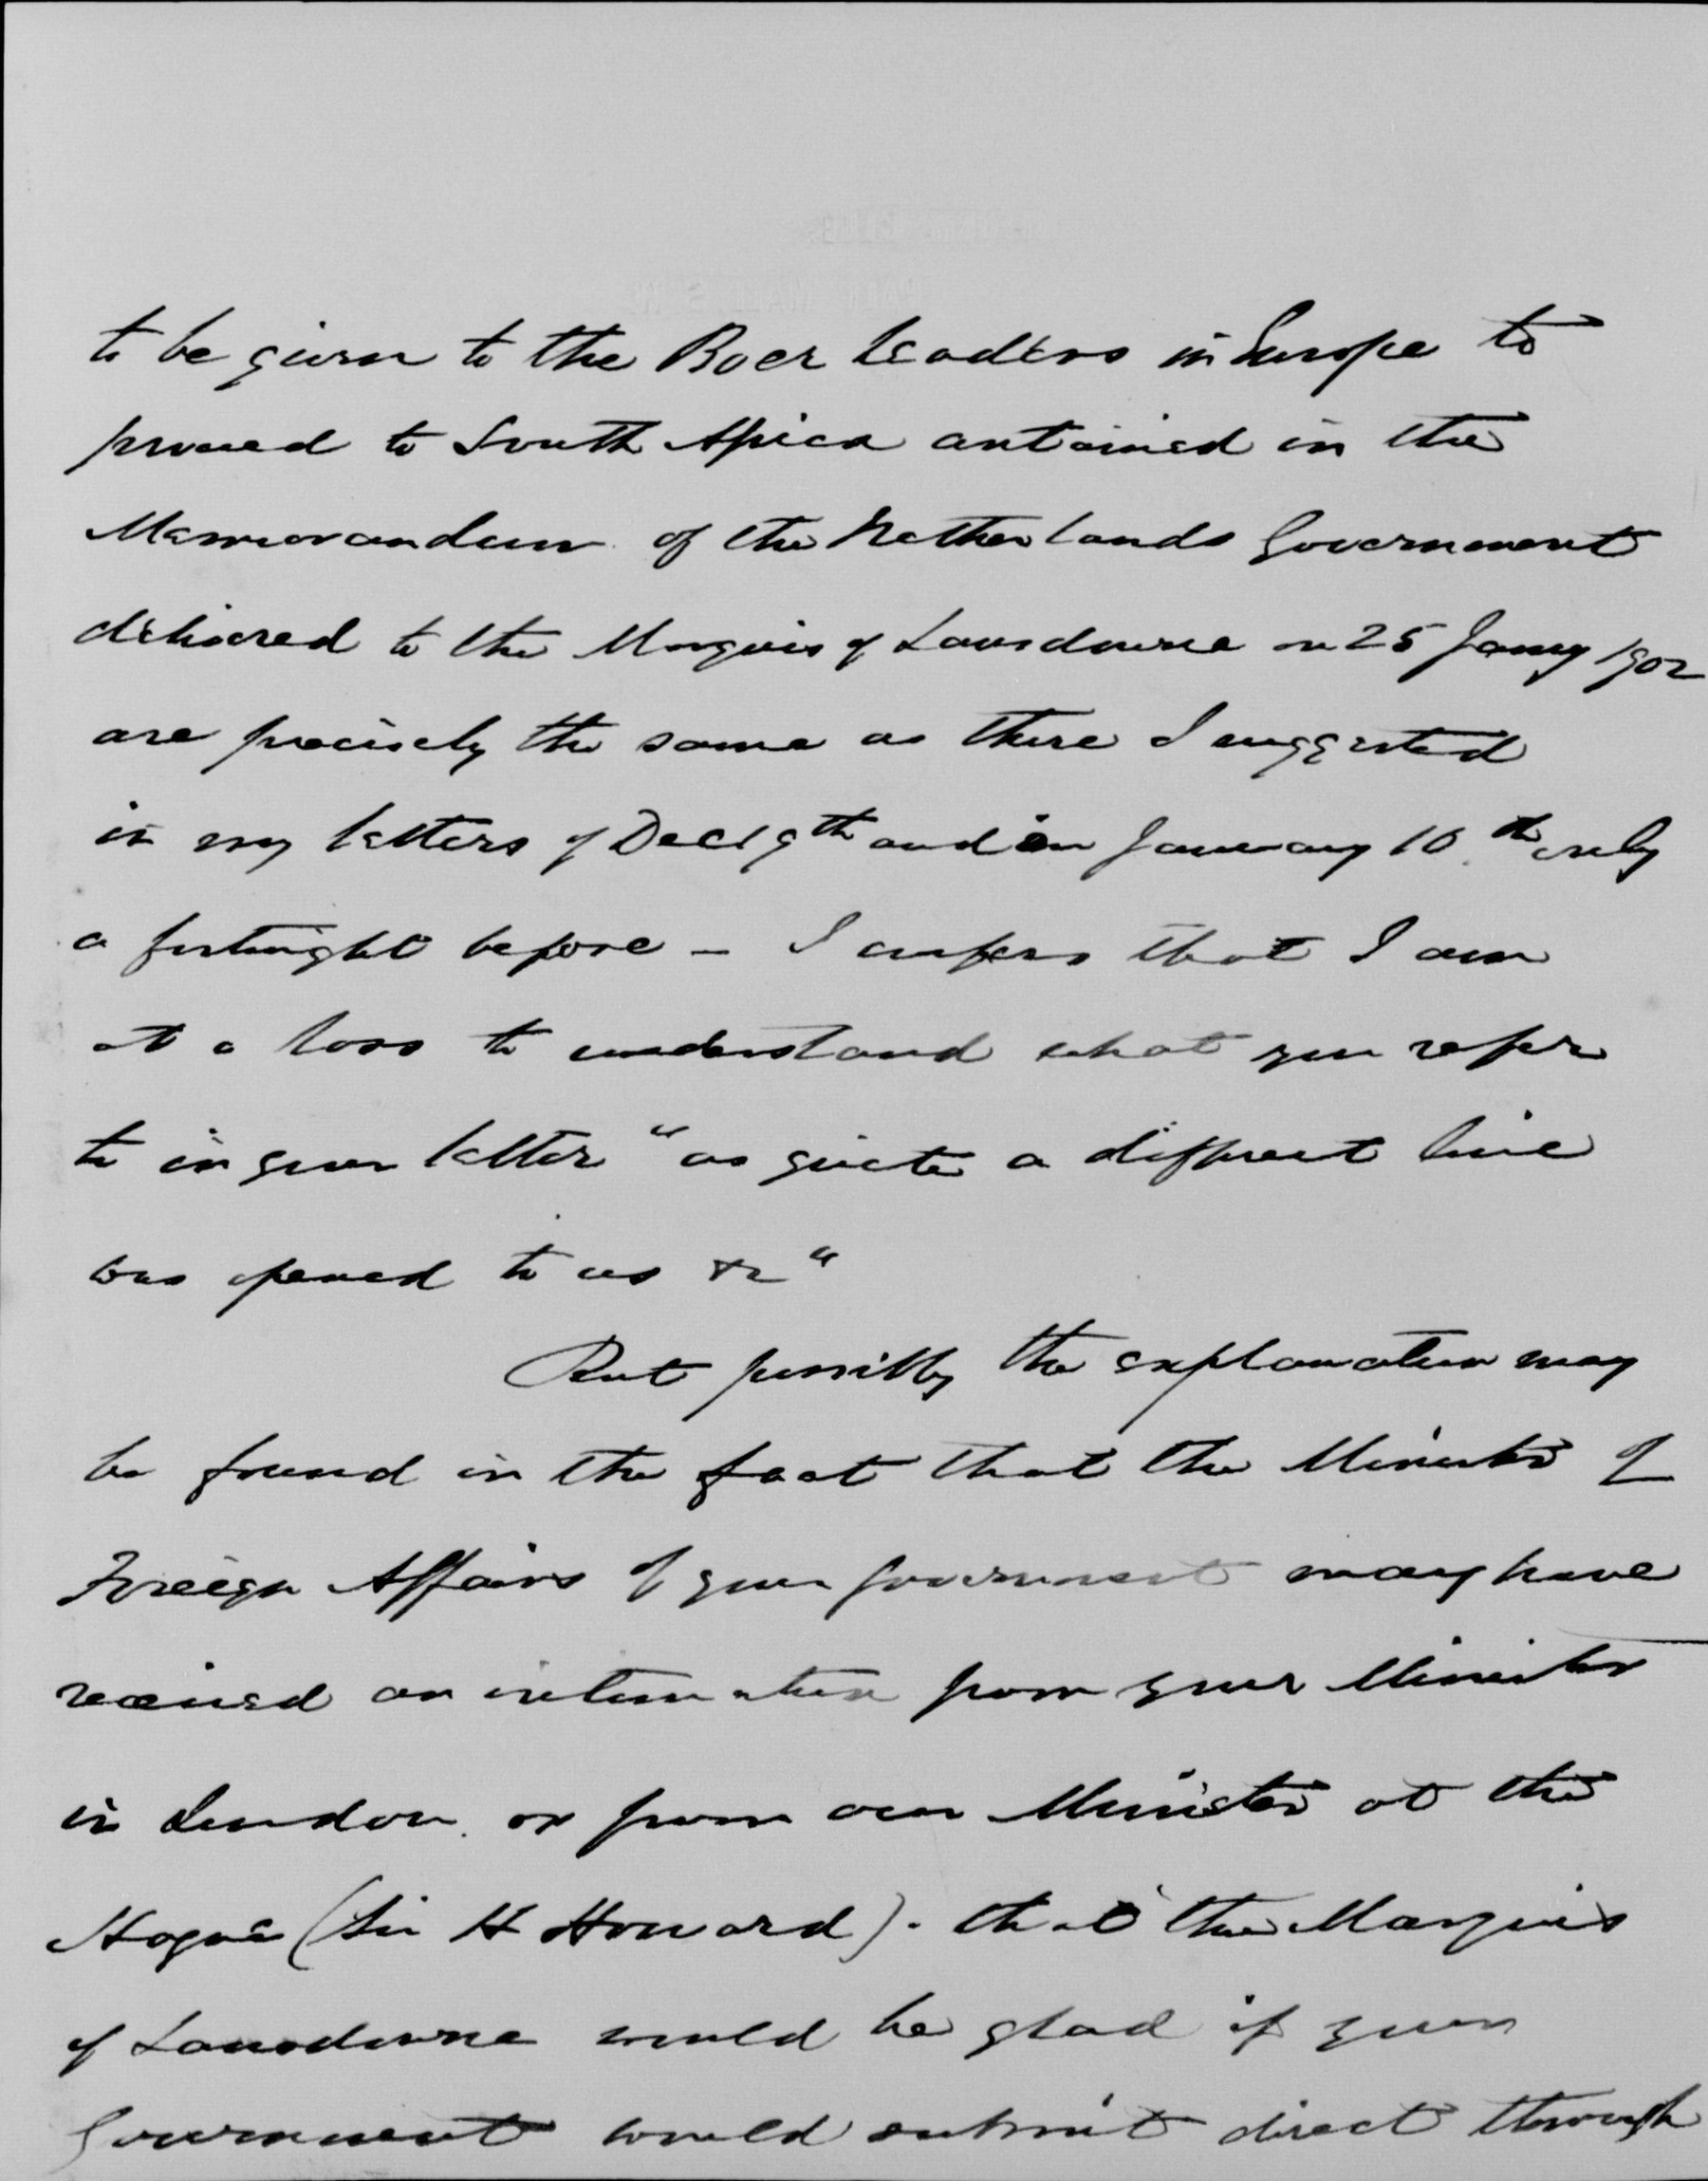 to be given to the Boer leaders in Europe to
proceed to South Africa contained in the
Memorandum of the Netherlands Government
delivered to the Marquis of Lansdowne on 25 Jany 1902
are precisely the same as those I suggested
in my letters of Dec 19th and on January 10th only
a fortnight before - I confess that I am
at a loss to understand what you refer
to in your letter "as quite a different line
was opened to us &c"
But possibly the explanation may
be found in the fact that the Minister of
Foreign Affairs of your Government may have
received an intimation from your Minister
in London or from our Minister at the
Hague (Sir H Howard). that the Marquis
of Lansdowne would be glad if your
Government would submit direct through